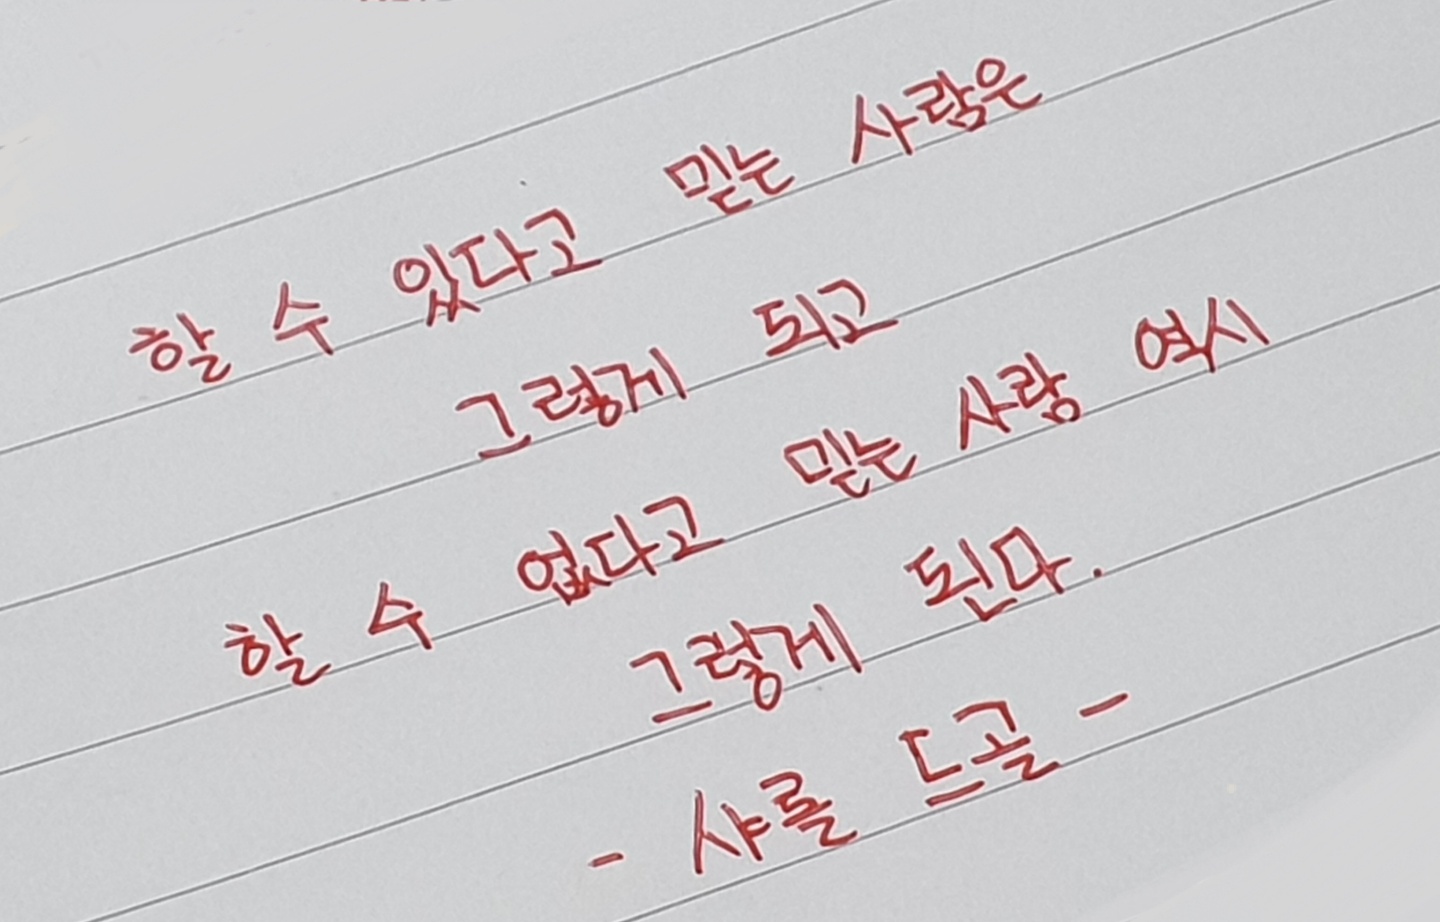 할 수 있다고 믿는 사람은
그렇게 되고
할 수 없다고 믿는 사랑 역시
그렇게 된다.
- 샤를 드골 -